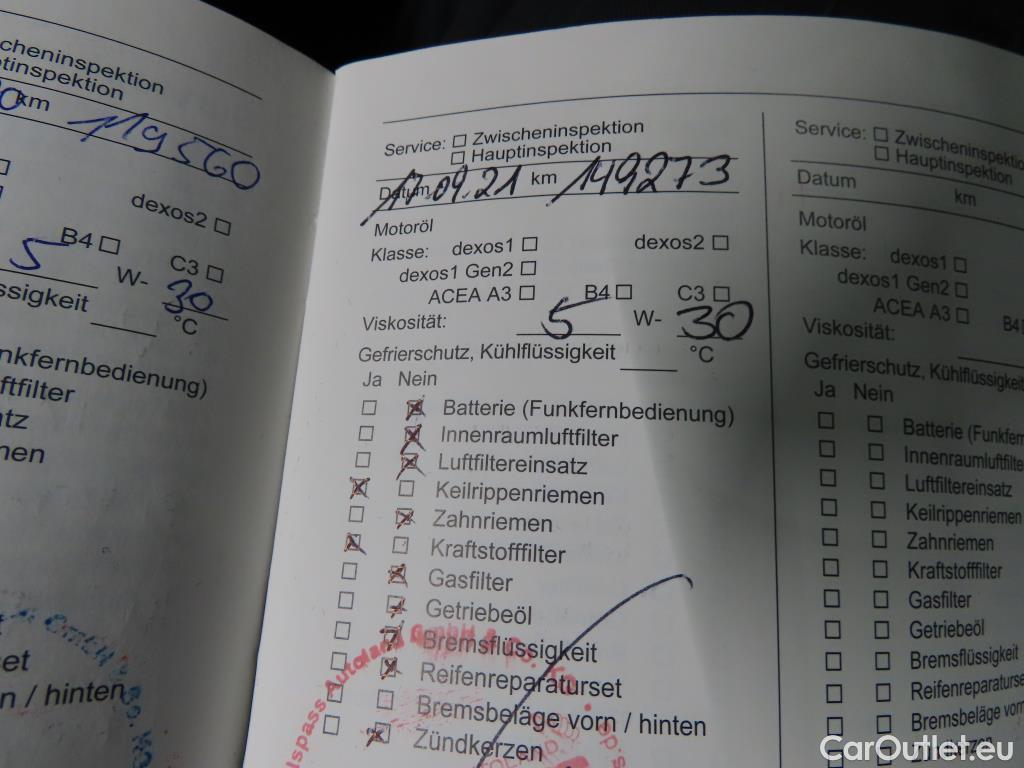 cheninspektion
ptinspektion
km 119560
dexos2
B4
C3
5 W- 30
ssigkeit
°C
nkfernbedienung)
ftfilter
tz
men
set
rn / hinten
Service: Zwischeninspektion
Hauptinspektion
Datum 17.09.21 km 149273
Motoröl
Klasse: dexos1 dexos2
dexos1 Gen2
ACEA A3 B4 C3
Viskosität: 5 W- 30
Gefrierschutz, Kühlflüssigkeit °C
Ja Nein
Batterie (Funkfernbedienung)
Innenraumluftfilter
Luftfiltereinsatz
Keilrippenriemen
Zahnriemen
Kraftstofffilter
Gasfilter
Getriebeöl
Bremsflüssigkeit
Reifenreparaturset
Bremsbeläge vorn / hinten
Zündkerzen
lspass Autoland GmbH & Co. KG
Service: Zwischeninspektion
Hauptinspektion
Datum km
Motoröl
Klasse: dexos1
dexos1 Gen2
ACEA A3 B4
Viskosität:
Gefrierschutz, Kühlflüssigkeit
Ja Nein
Batterie (Funkfern
Innenraumluftfilte
Luftfiltereinsatz
Keilrippenriemen
Zahnriemen
Kraftstofffilter
Gasfilter
Getriebeöl
Bremsflüssigkeit
Reifenreparaturse
Bremsbeläge vorn
CarOutlet.eu